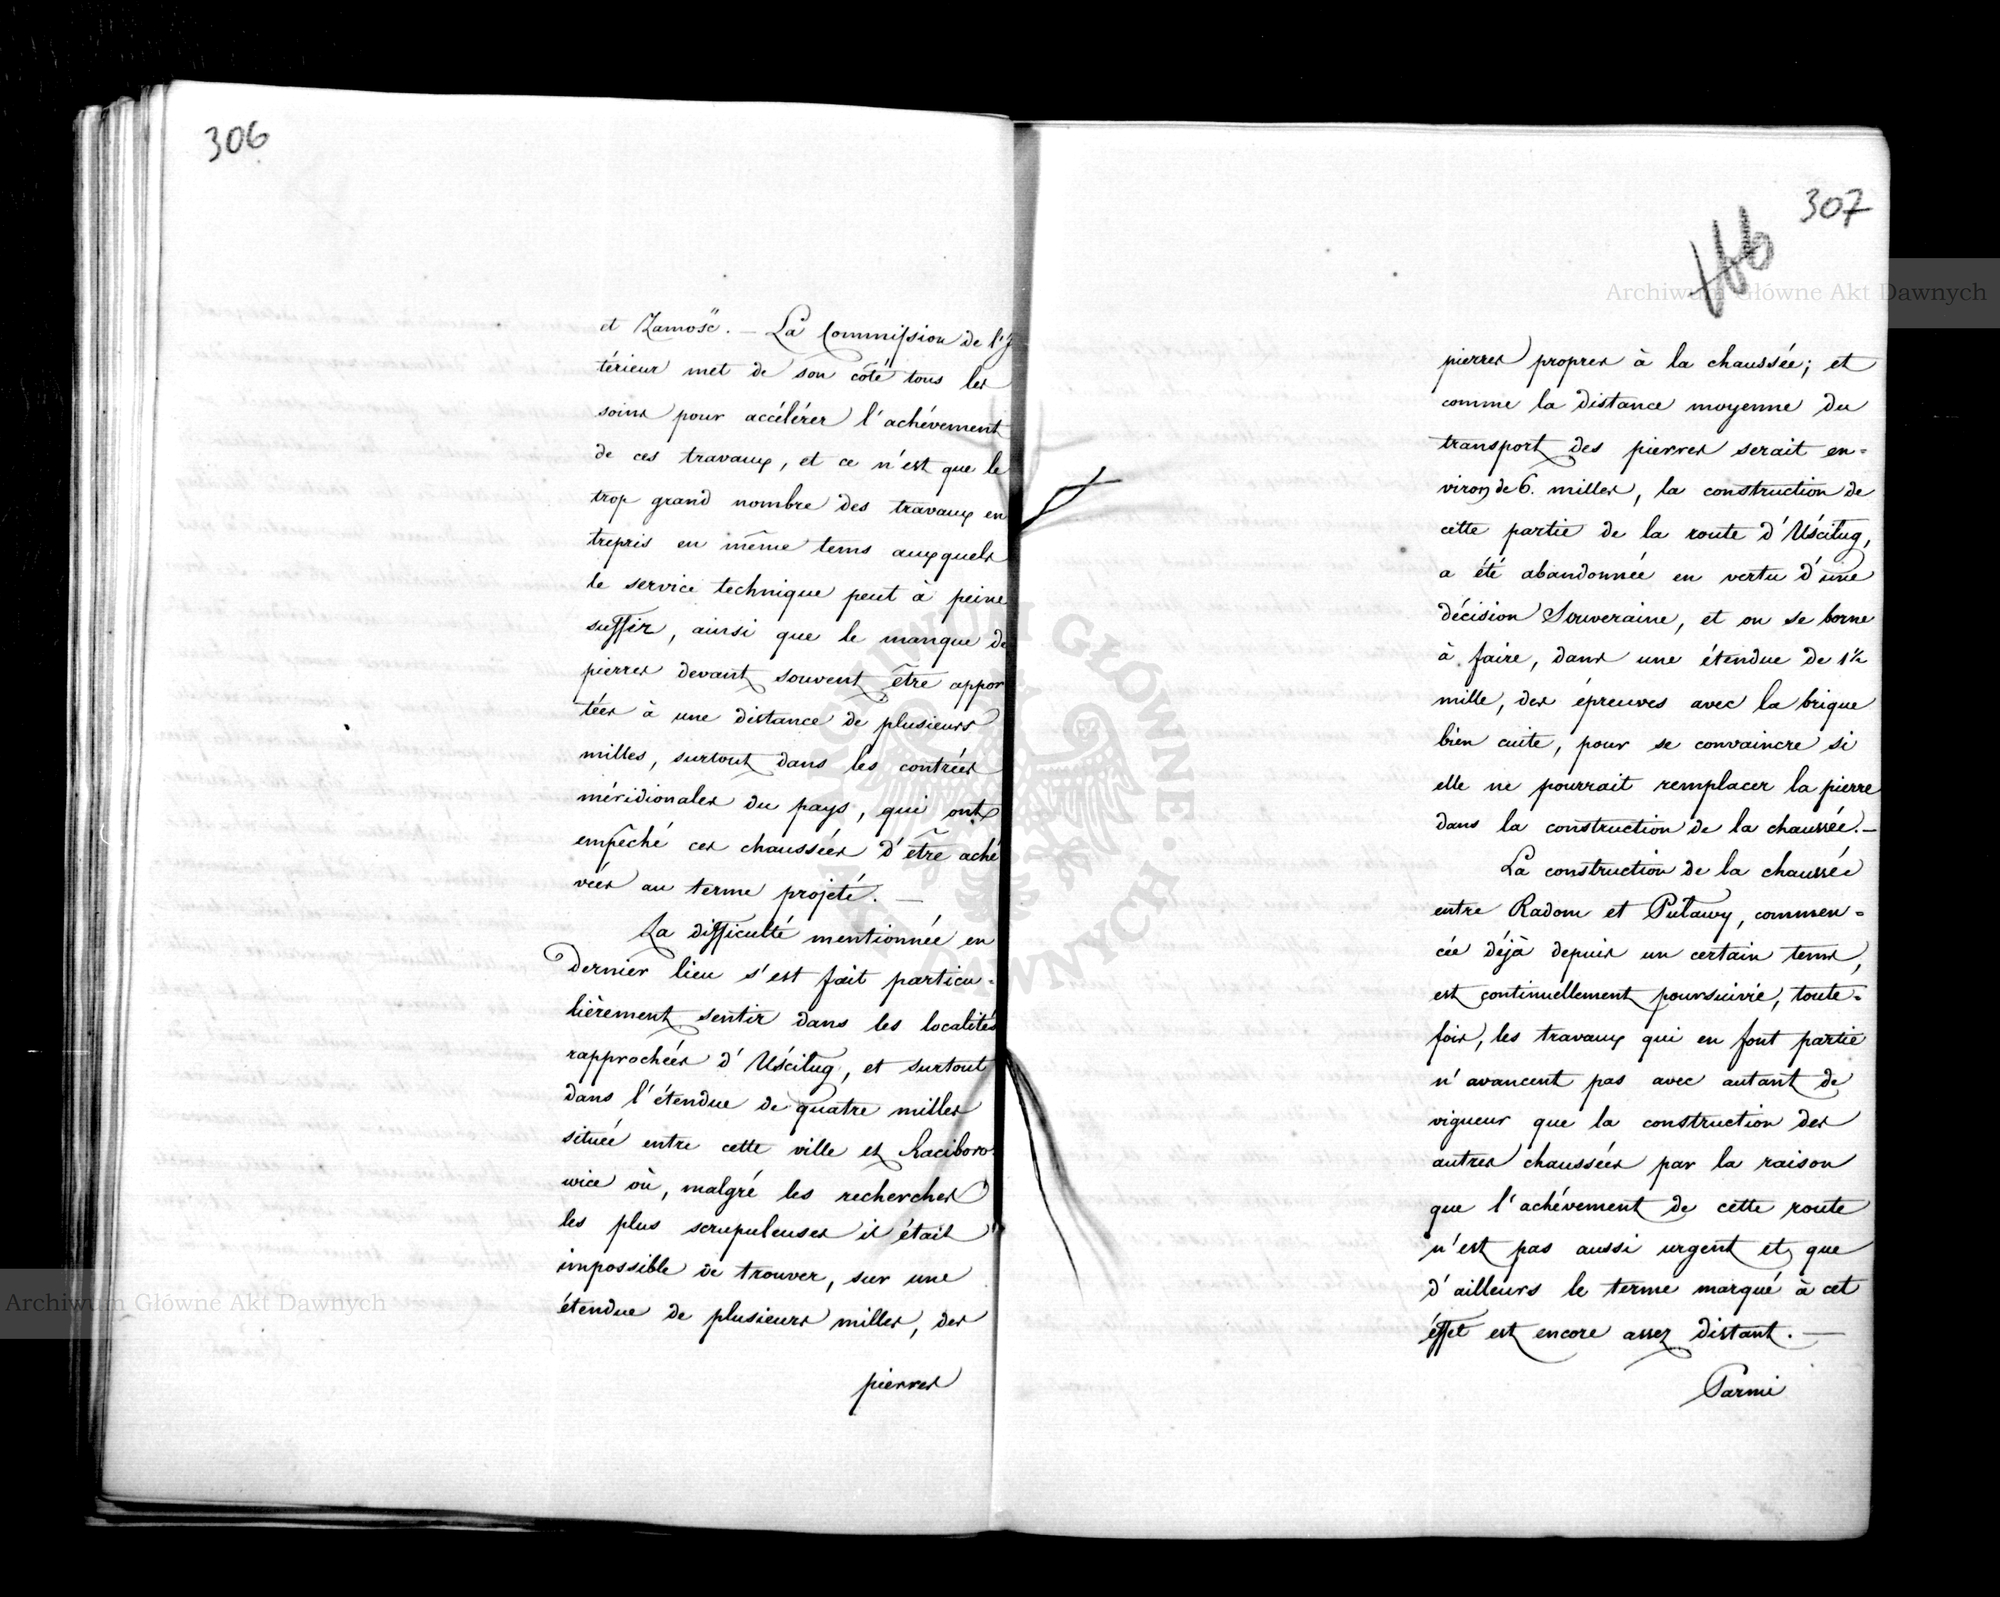 306
et Zamość. — La Commission de l'I
térieur met de son côté tous les
soins pour accélérer l'achévement
de ces travaux, et ce n'est que le
trop grand nombre des travaux en
trepris en même tems auxquels
le service technique peut à peine
suffir, ainsi que le manque de
pierres devant souvent être appor
tées à une distance de plusieurs
milles, surtout dans les contrées
méridionales du pays, qui ont
empêché ces chaussées d'être aché
vées au terme projeté. —
La difficulté mentionnée en
dernier lieu s'est fait particu-
lièrement sentir dans les localités
rapprochées d'Uścilug, et surtout
dans l'étendue de quatre milles
située entre cette ville et Raciboro-
wice où, malgré les recherches
les plus scrupuleuses il était
impossible de trouver, sur une
étendue de plusieurs milles, des
pierres
307
pierres propres à la chaussée; et
comme la distance moyenne du
transport des pierres serait en=
viron de 6. milles, la construction de
cette partie de la route d'Uścilug,
a été abandonnée en vertu d'une
décision Souveraine, et on se borne
à faire, dans une étendue de 1½
mille, des épreuves avec la brique
bien cuite, pour se convaincre si
elle ne pourrait remplacer la pierre
dans la construction de la chaussée. —
La construction de la chaussée
entre Radom et Puławy, commen=
cée déjà depuis un certain tems,
est continuellement poursuivie, toute=
fois, les travaux qui en font partie
n'avancent pas avec autant de
vigueur que la construction des
autres chaussées par la raison
que l'achévement de cette route
n'est pas aussi urgent et que
d'ailleurs le terme marqué à cet
éffet est encore assez distant. —
Parmi
Archiwum Główne Akt Dawnych
Archiwum Główne Akt Dawnych
ARCHIWUM GŁÓWNE AKT DAWNYCH